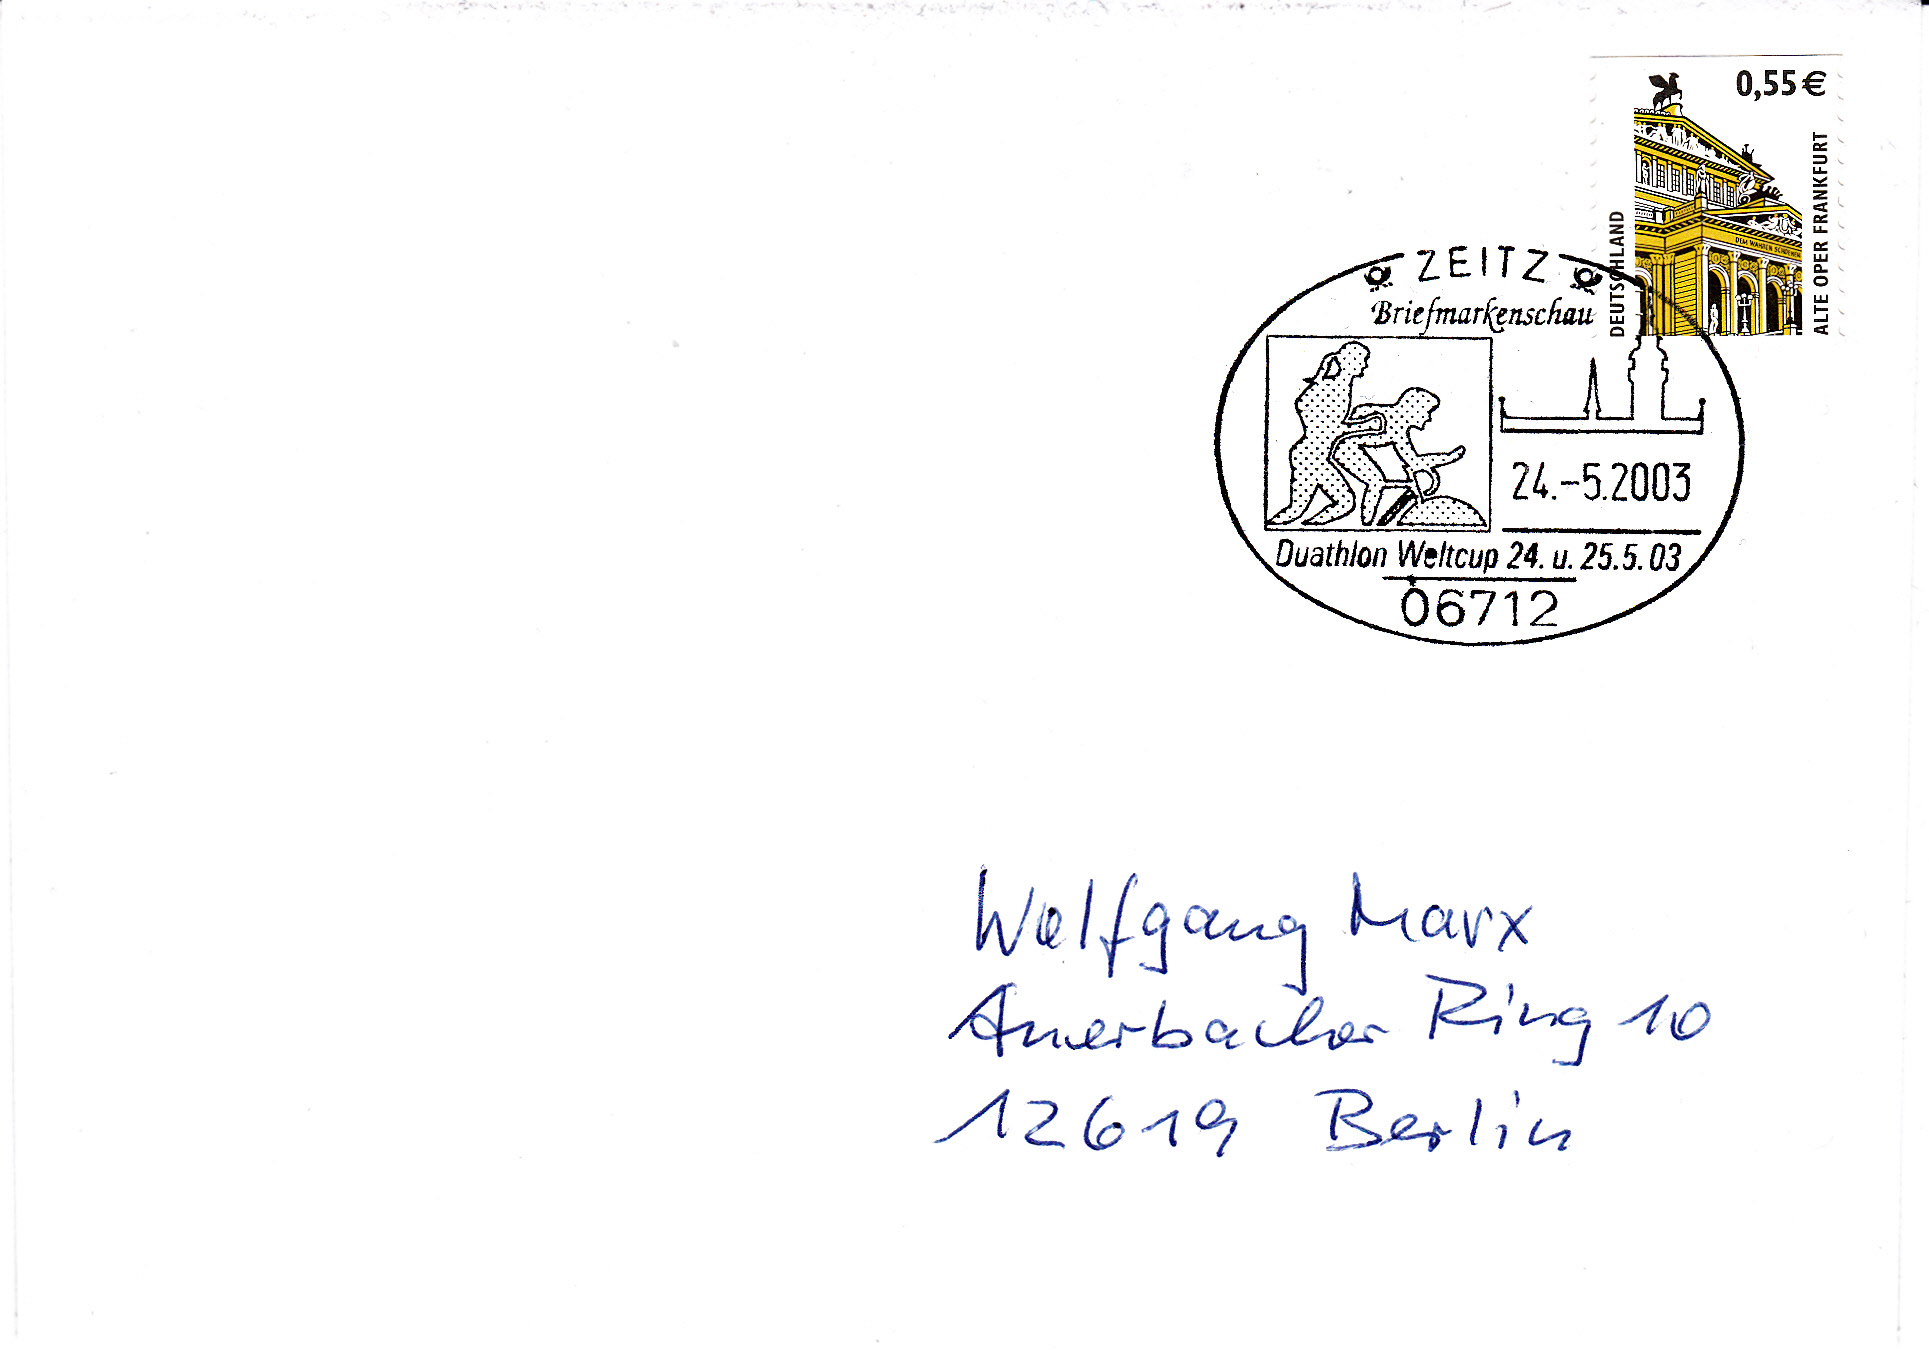 0,55€
DEUTSCHLAND
ALTE OPER FRANKFURT
DEM WAHREN SCHOENEN
ZEITZ
Briefmarkenschau
24.-5.2003
Duathlon Weltcup 24. u. 25.5.03
06712
Wolfgang Marx
Auerbacher Ring 10
12619 Berlin